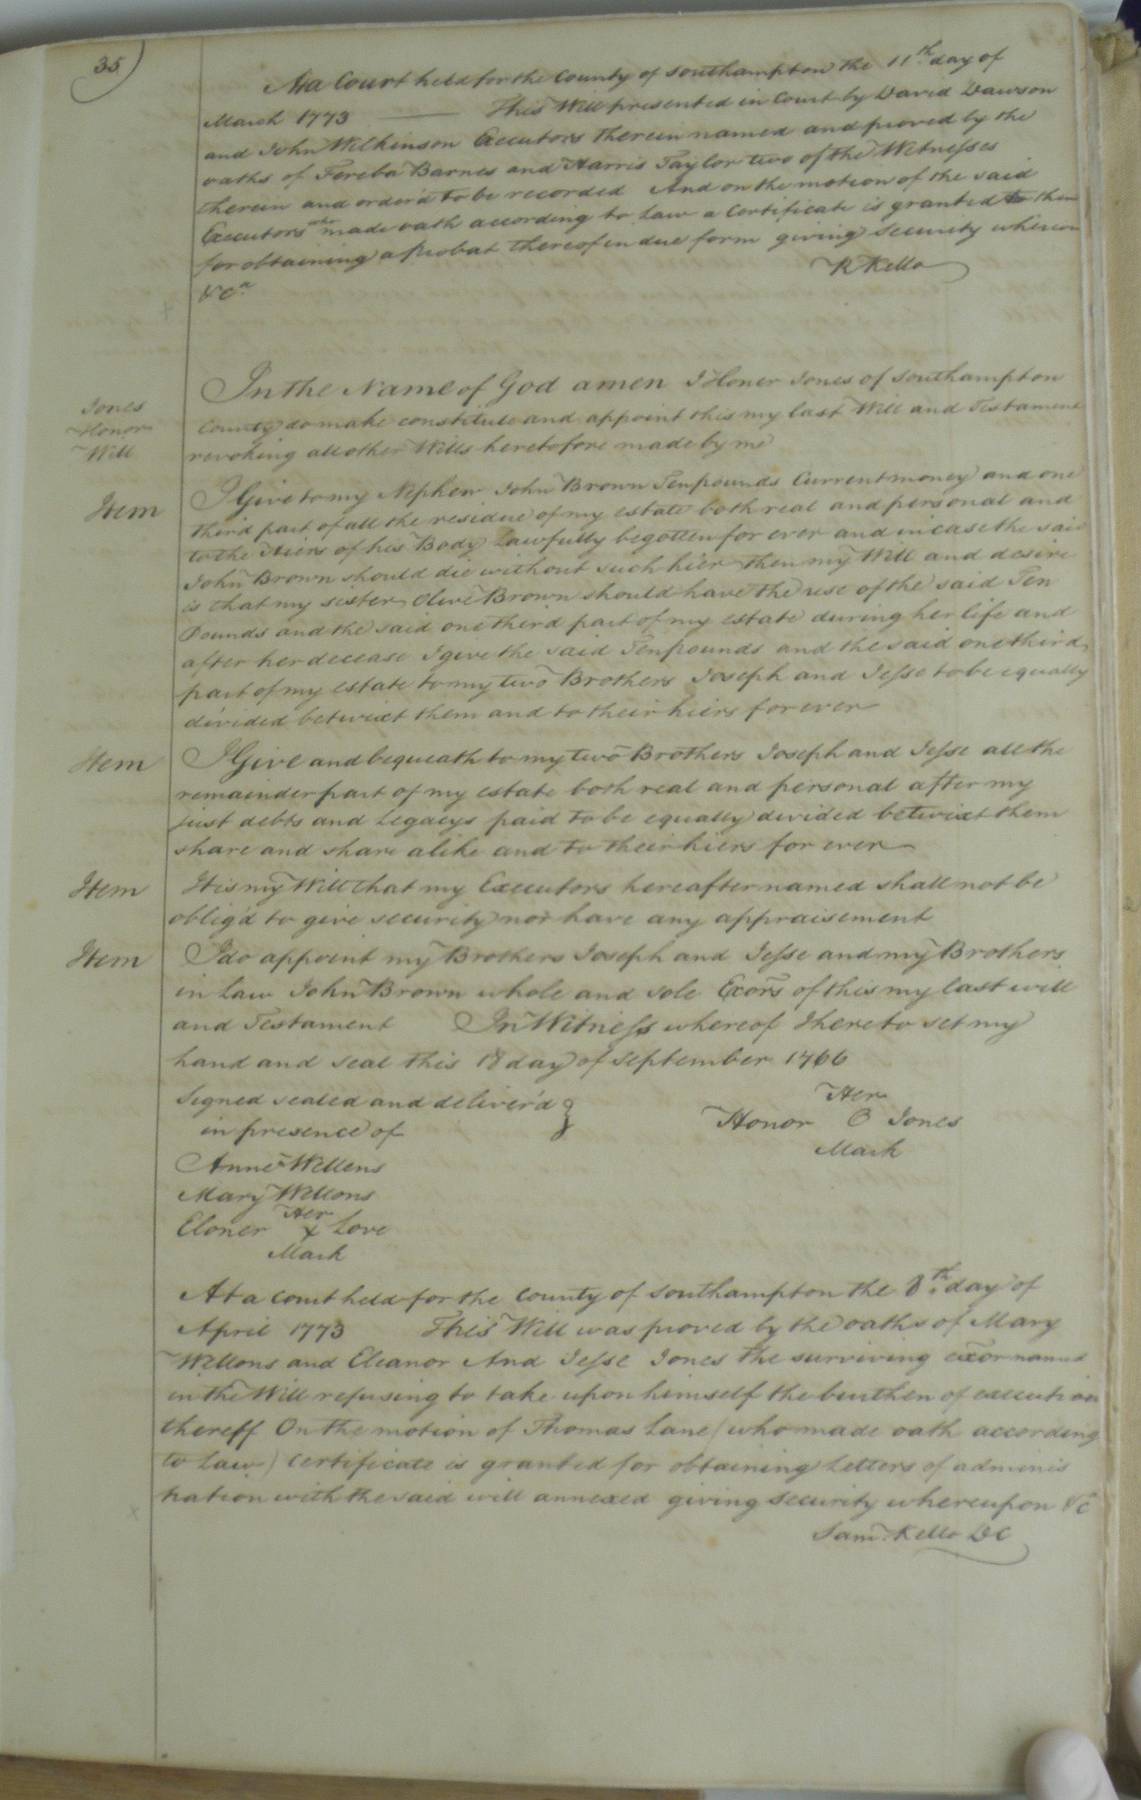 35
At a Court held for the County of Southampton the 11th day of
March 1773 This Will presented in Court by David Dawson
and John Wilkinson Executors therein named and proved by the
oaths of Fereba Barnes and Harris Taylor two of the Witnesses
therein and order'd to be recorded And on the motion of the said
Executors who made oath according to Law a Certificate is granted to them
for obtaining a Probat thereof in due form giving Security whereon
&ca
R Kello
Jones
Honor
Will
In the Name of God amen I Honer Jones of Southampton
County do make constitute and appoint this my last Will and Testament
revoking all other Wills heretofore made by me
Item I Give to my Nephew John Brown Ten pounds Current money and one
third part of all the residue of my estate both real and personal and
to the Hiers of his Body Lawfully begotten for ever and in case the said
John Brown should die without such hier then my Will and desire
is that my sister Olive Brown should have the use of the said Ten
Pounds and the said one third part of my estate during her life and
after her decease I give the said Ten pounds and the said one third
part of my estate to my two Brothers Joseph and Jesse to be equally
divided betwixt them and to their hiers for ever
Item I Give and bequeath to my two Brothers Joseph and Jesse all the
remainder part of my estate both real and personal after my
just debts and Legacys paid to be equally divided betwixt them
share and share alike and to their hiers for ever
Item It is my Will that my Executors hereafter named shall not be
oblig'd to give security nor have any appraisement
Item I do appoint my Brothers Joseph and Jesse and my Brothers
in Law John Brown whole and sole Exors of this my last will
and Testament In Witness whereof I hereto set my
hand and seal this 18 day of September 1766
Signed sealed and deliver'd
in presence of
Her
Honor O Jones
Mark
Anne Wellens
Mary Wellons
Her
Eloner x Love
Mark
At a Court held for the County of Southampton the 8th day of
April 1773 This Will was proved by the oaths of Mary
Wellons and Eleanor And Jesse Jones the surviving exor named
in the Will refusing to take upon himself the burthen of execution
thereff On the motion of Thomas Lane (who made oath according
to Law) Certificate is granted for obtaining Letters of adminis
tration with the said will annexed giving Security whereupon &c
Sam: Kello DC